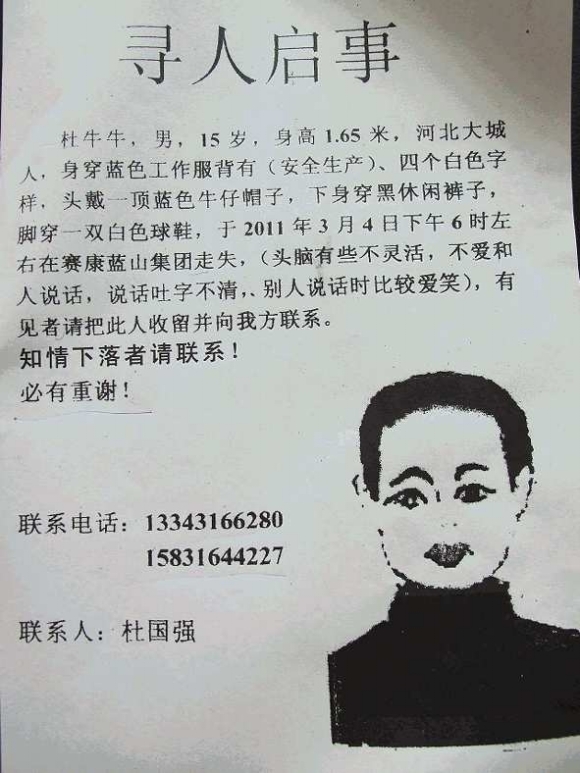 寻人启事
杜牛牛，男，15 岁，身高 1.65 米，河北大城
人，身穿蓝色工作服背有（安全生产）、四个白色字
样，头戴一顶蓝色牛仔帽子，下身穿黑休闲裤子，
脚穿一双白色球鞋，于 2011 年 3 月 4 日下午 6 时左
右在赛康蓝山集团走失，（头脑有些不灵活，不爱和
人说话，说话吐字不清，、别人说话时比较爱笑），有
见者请把此人收留并向我方联系。
知情下落者请联系！
必有重谢！
联系电话：13343166280
15831644227
联系人：杜国强